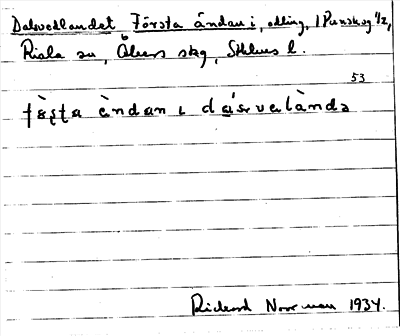 Dalsvedlandet Första ändan i, odling, 1 Punsksg 1/2,
Riala sn, Åkers skg, Sthlms l.
53
fæsta ændan i da:svelàndə
Rickard Norrman 1934.